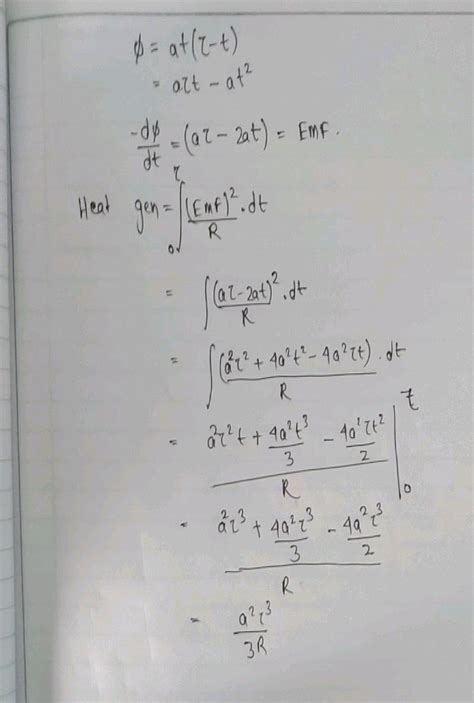 φ = at(τ-t)
= aτt - at²
-dφ/dt = (aτ - 2at) = Emf.
Heat gen = ∫₀^τ (Emf)²/R . dt
= ∫ (aτ-2at)²/R . dt
= ∫ (a²τ² + 4a²t² - 4a²τt)/R . dt
= (a²τ²t + 4a²t³/3 - 4a²τt²/2)/R |₀^τ
= (a²τ³ + 4a²τ³/3 - 4a²τ³/2)/R
= a²τ³/3R